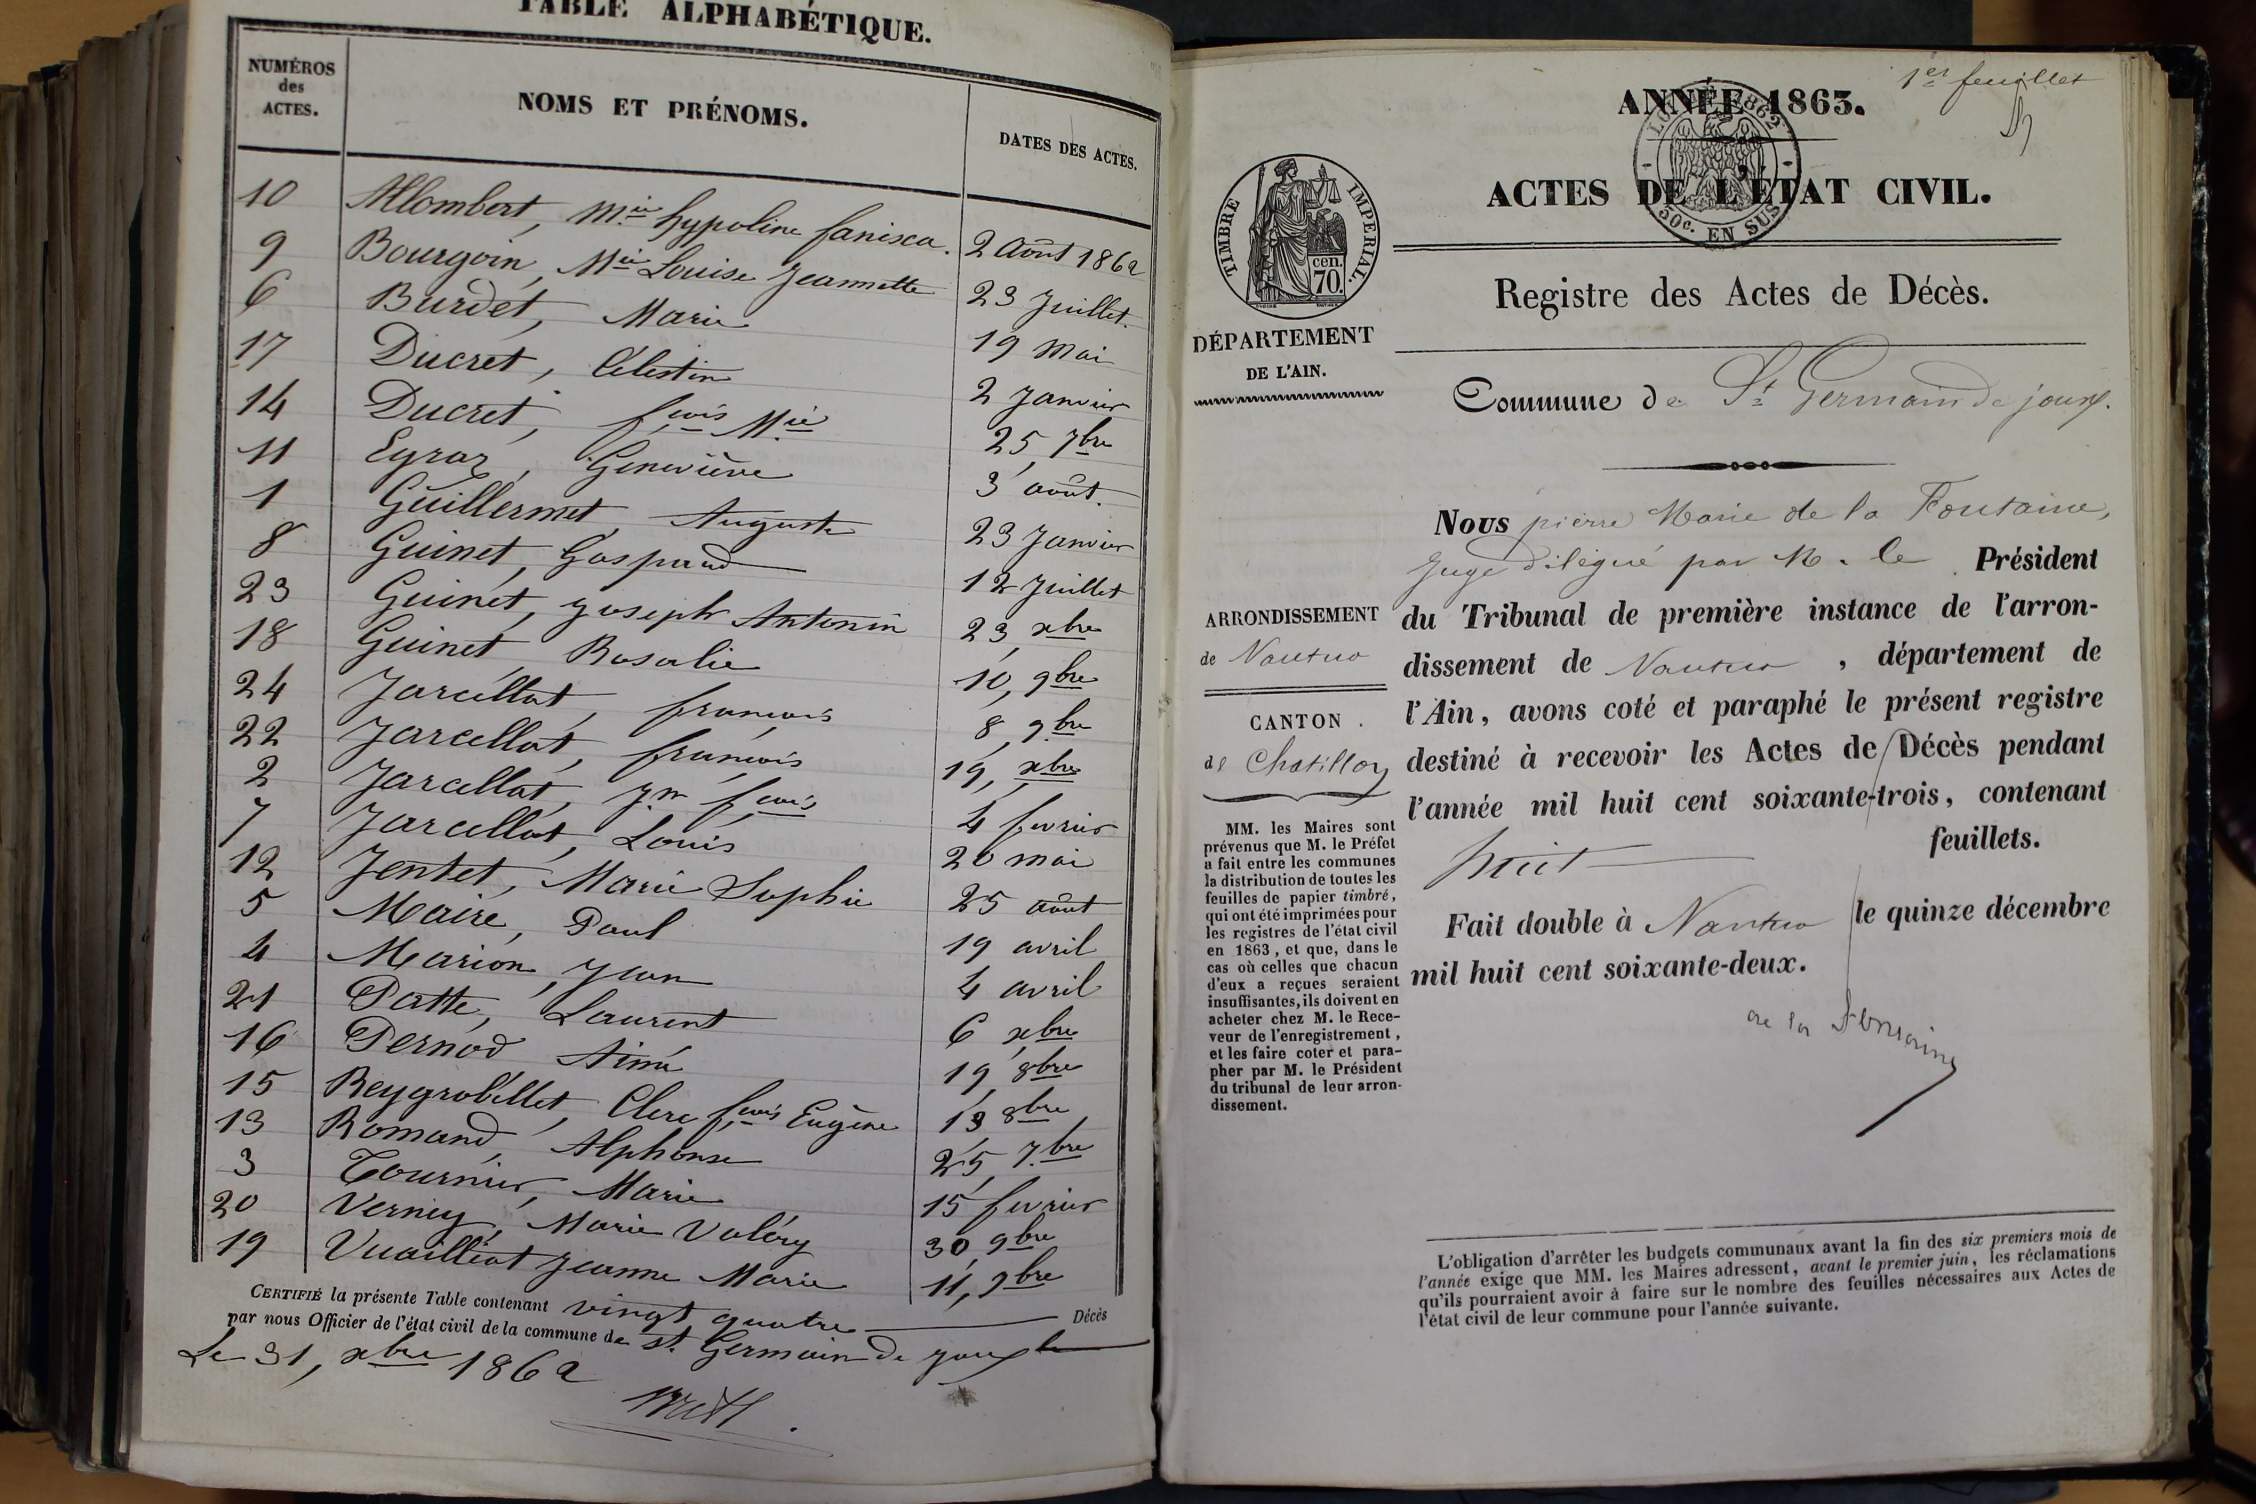 TABLE ALPHABÉTIQUE.
NUMÉROS des ACTES. NOMS ET PRÉNOMS. DATES DES ACTES.
10 Allombert, Mie hypoline fanisca. 2 Août 1862
9 Bourgoin, Mie Louise Jeannette 23 Juillet.
6 Burdet, Marie 19 Mai
17 Ducret, Célestin 2 Janvier
14 Ducret, fçois Mie 25, 7bre
11 Eyraz, Geneviève 3 août.
1 Guillermet, Auguste 23 Janvier
8 Guinet, Gaspard 12 Juillet
23 Guinet, Joseph Antonin 23, xbre
18 Guinet Rosalie 10, 9bre
24 Jarcellat, françois 8, 9bre
22 Jarcellat, françois 19, xbre
2 Jarcellat, Jn fçois 4 fevrier
7 Jarcellat, Louis 20 mai
12 Jentet, Marie Sophie 25 août
5 Maire, Paul 19 avril
4 Marion, Jean 4 avril
21 Patte, Laurent 6 xbre
16 Pernod Aimé 19, 8bre
15 Reygrobellet, Clerc fçois Eugène 13 8bre
13 Romand, Alphonse 25, 7bre
3 Tournier, Marie 15 fevrier
20 Verney, Marie Valéry 30, 9bre
19 Vuaillat Jeanne Marie 11, 9bre
CERTIFIÉ la présente Table contenant vingt quatre Décès
par nous Officier de l'état civil de la commune de St. Germain de Joux le
Le 31, xbre 1862
1er feuillet
ANNÉE 1863.
LOI DE 1862
50c. EN SUS
ACTES DE L'ÉTAT CIVIL.
TIMBRE IMPÉRIAL.
70. cen.
Registre des Actes de Décès.
DÉPARTEMENT
DE L'AIN.
Commune de St Germain de joux.
Nous pierre Marie de la Fontaine,
juge délégué par M. le Président
du Tribunal de première instance de l'arron-
dissement de Nantua, département de
l'Ain, avons coté et paraphé le présent registre
destiné à recevoir les Actes de Décès pendant
l'année mil huit cent soixante-trois, contenant
huit feuillets.
Fait double à Nantua le quinze décembre
mil huit cent soixante-deux.
de la Fontaine
ARRONDISSEMENT
de Nantua
CANTON
de Chatillon
MM. les Maires sont
prévenus que M. le Préfet
a fait entre les communes
la distribution de toutes les
feuilles de papier timbré,
qui ont été imprimées pour
les registres de l'état civil
en 1863, et que, dans le
cas où celles que chacun
d'eux a reçues seraient
insuffisantes, ils doivent en
acheter chez M. le Rece-
veur de l'enregistrement,
et les faire coter et para-
pher par M. le Président
du tribunal de leur arron-
dissement.
L'obligation d'arrêter les budgets communaux avant la fin des six premiers mois de
l'année exige que MM. les Maires adressent, avant le premier juin, les réclamations
qu'ils pourraient avoir à faire sur le nombre des feuilles nécessaires aux Actes de
l'état civil de leur commune pour l'année suivante.